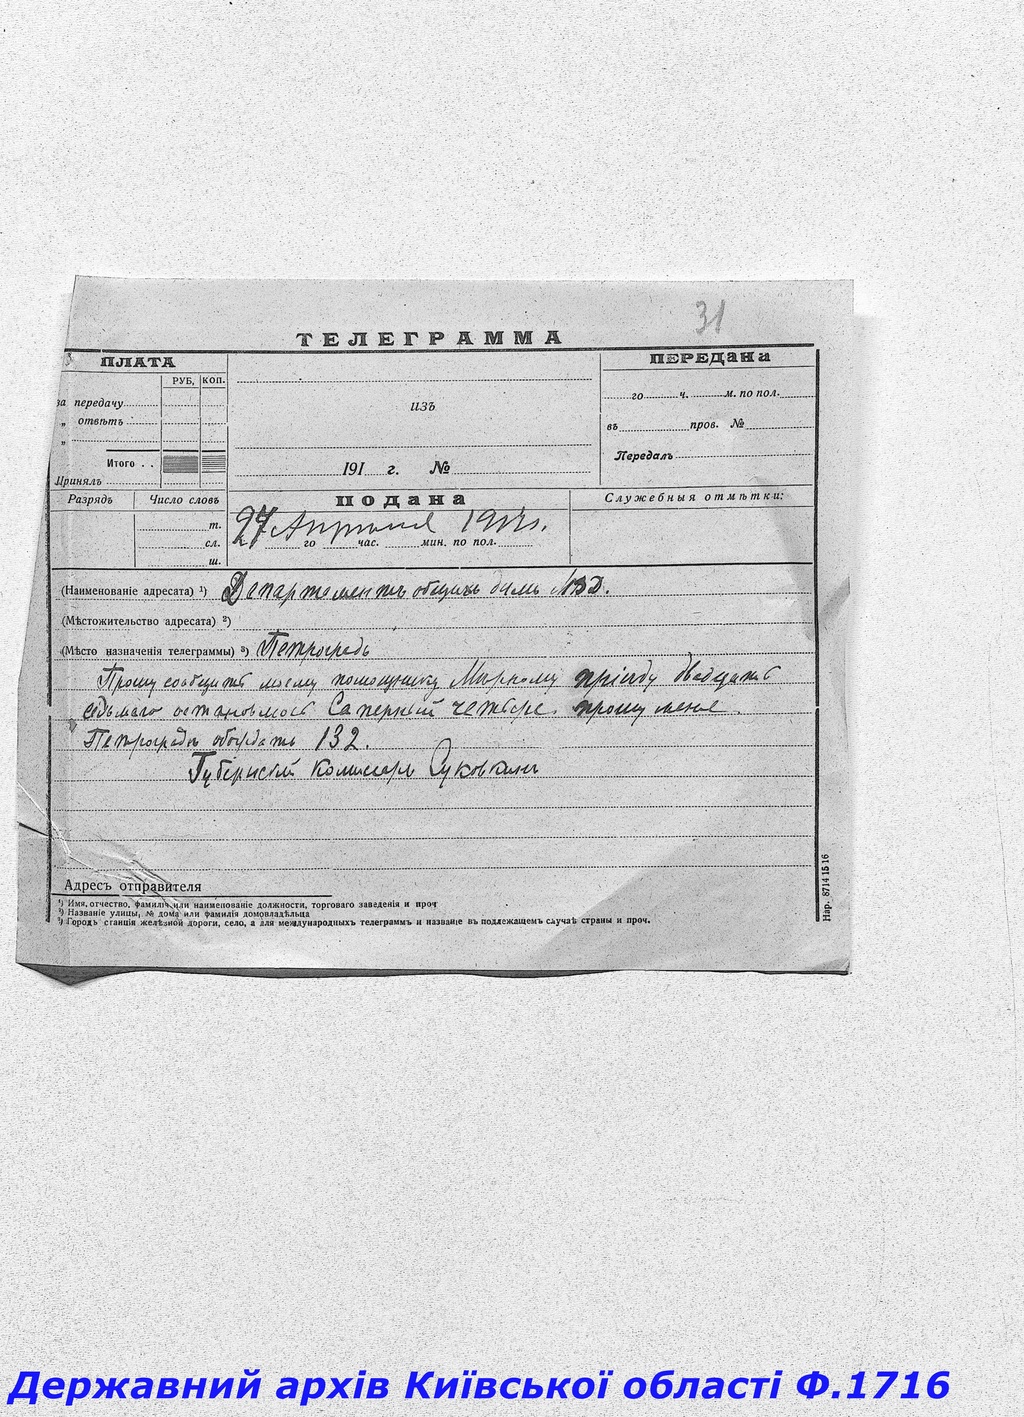 31
ТЕЛЕГРАММА
ПЛАТА
РУБ. КОП.
за передачу
„ отвѣтъ
„
Итого . .
Принялъ
изъ
191 г. №
ПЕРЕДАНА
го ч. м. по пол.
въ пров. №
Передалъ
Разрядъ Число словъ
т.
сл.
ш.
ПОДАНА
27 Апрѣля 1917 г.
го час. мин. по пол.
Служебныя отмѣтки:
(Наименованіе адресата) ¹) Департаментъ общихъ дѣлъ МВД.
(Мѣстожительство адресата) ²)
(Мѣсто назначенія телеграммы) ³) Петроградъ
Прошу сообщить моему помощнику Мирному пріѣду двадцать
седьмого остановлюсь Саперный четыре прошу меня
Петроградъ обождать 132.
Губернскій Комиссаръ Суковкинъ
Адресъ отправителя
¹) Имя, отчество, фамилія или наименованіе должности, торговаго заведенія и проч
²) Названіе улицы, № дома или фамилія домовладѣльца
³) Городъ станція желѣзной дороги, село, а для международныхъ телеграммъ и названіе въ подлежащемъ случаѣ страны и проч.
Нар. 8714 15 16
Державний архів Київської області Ф.1716